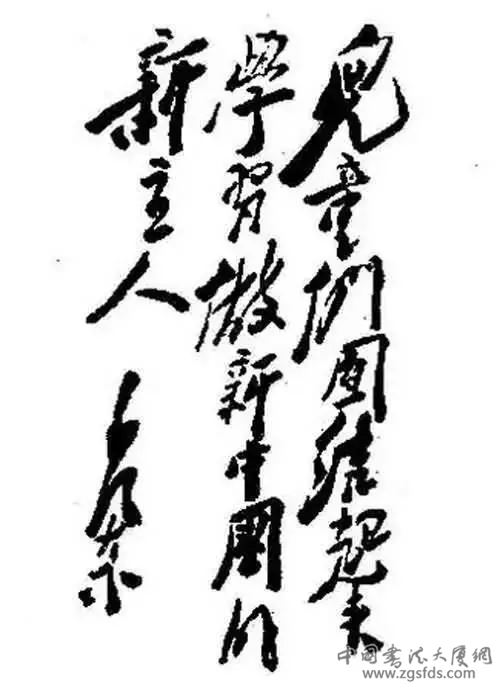 兒童们團結起来
學習做新中國的
新主人
毛泽东
中国书法大厦網
www.zgsfds.com